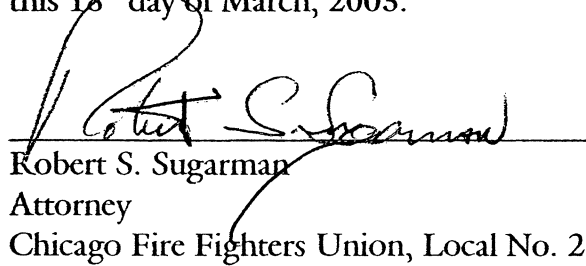 this 18th day of March, 2003.
Robert S. Sugarman
Robert S. Sugarman
Attorney
Chicago Fire Fighters Union, Local No. 2